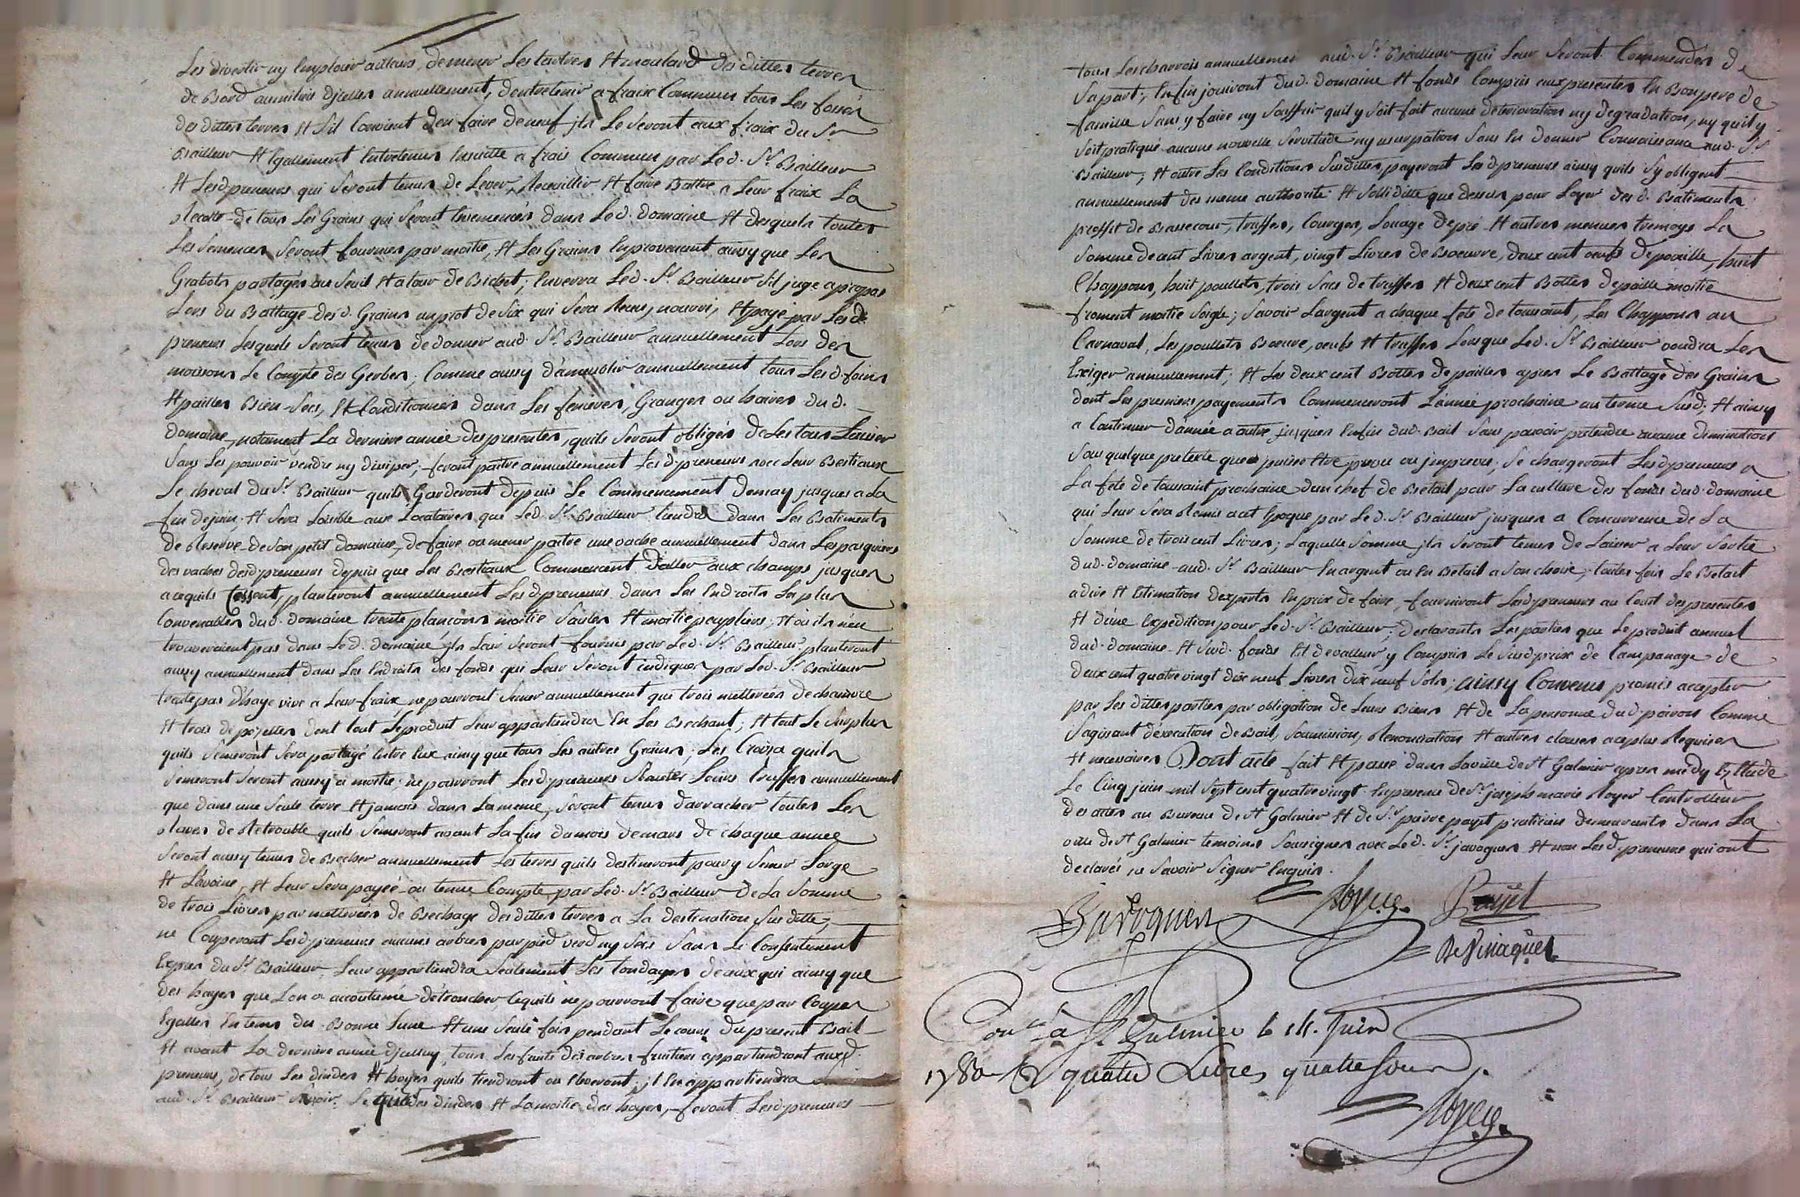 Les divertir ny Employer ailleurs, de mener Les tertres Et moulard des dittes terres
de Bord au milieu d'jcelles annuellement, d'entretenir a fraix Communs tous Les fossés
des dittes terres Et s'il Convient d'en faire de neuf jls Le seront aux fraix du Sr
Bailleur Et Egallement Entretenus Ensuitte a frais Communs par Led. Sr. Bailleur
Et Lesd preneurs qui seront tenus de Lever, Recueillir Et faire Battre a Leur fraix La
Recolte de tous Les Grains qui seront Ensemencés dans Led. domaine Et desquels toutes
Les semences seront fournies par moitié, Et Les Grains En provenant ainsy que Les
Grabots partagés au seuil Et a tour de Bichet; Enverra Led. Sr. Bailleur s'il juge apropos
Lors du Battage des d. Grains un prot de six qui sera Reçu, nourri, Et payé par Lesd.
preneurs Lesquels seront tenus de donner aud. Sr. Bailleur annuellement Lors des
moissons Le Compte des Gerbes; Comme aussy d'ameublir annuellement tous Les d. foins
Et pailles Bien secs, Et Conditionnés dans Les fenieres, Granges ou basses du d.
domaine, notament La derniere année des presentes, quils seront obligés de Les tous Laisser
sans Les pouvoir vendre ny diviser, feront paitre annuellement Les d preneurs avec Leur Bestiaux
Le cheval du Sr. Bailleur quils Garderont depuis Le Commencement de may jusques a La
fin de juin. Et sera Loisible aux Locataires que Led. Sr. Bailleur tiendra dans Les Batiments
de Reserve de son petit domaine, de faire ou mener paitre une vache annuellement dans Les pasquiers
des vaches desd preneurs depuis que Les Bestiaux Commencent d'aller aux champs jusques
a ce quils Cessent, planteront annuellement Lesd preneurs dans Les Endroits Les plus
Convenables dud. domaine trente plançons moitié saules Et moitié peupliers; Et où ils n'en
trouveroient pas dans Led. domaine jls Leur seront fournis par Led. Sr. Bailleur, planteront
aussy annuellement dans Les Endroits des fonds qui Leur seront indiqués par Led. Sr. Bailleur
trente pas d'haye vive a Leur fraix, ne pourront semer annuellement que trois metterées de chanvre
Et trois de pezettes dont tout Le produit Leur appartiendra En Les Bechant; Et tout Le surplus
quils semeront sera partagé Entre Eux ainsy que tous Les autres Grains; Les Croisa quils
semeront seront aussy a moitié; ne pourront Lesd preneurs planter Leurs truffes annuellement
que dans une seule terre Et jamais dans La meme, seront tenus d'arracher toutes Les
Raves de Retrouble quils semeront avant La fin du mois de mars de chaque année
seront aussy tenus de Becher annuellement Les terres quils destineront pour y semer L'orge
Et L'avoine, Et Leur sera payée ou tenue Compte par Led. Sr. Bailleur de La somme
de trois Livres par metterées de Bechage des dittes terres a La destination susditte,
ne Couperont Lesd preneurs aucuns arbres par pied verd ny secs sans Le Consentement
Exprès du Sr. Bailleur Leur appartiendra seulement Les tondages de ceux qui ainsy que
des hayes que L'on a accoutumé d'Etroncher Lequils ne pourront faire que par Coupes
Egalles En tems du Bonne Lune Et une seule fois pendant Le cours du present Bail
Et avant La derniere année d'jcelluy, tous Les fruits des arbres fruitiers appartiendront auxd.
preneurs, de tous Les dindes Et hoyes quils tiendront ou Eleveront, jl En appartiendra
aud. Sr. Bailleur scavoir Le quart des dindes Et La moitié des hoyes, feront Lesd preneurs
tous Les charrois annuellement aud. Sr. Bailleur qui Leur seront Commendés de
sa part; Enfin jouiront dud. domaine Et fonds Compris aux presentes En Bon pere de
famille sans y faire ny souffrir quil y soit fait aucune deterioration ny degradation, ny quil y
soit pratiqué aucune nouvelle servitude ny usurpation sans En donner Connaissance aud. Sr
Bailleur, Et outre Les Conditions susdittes, payeront Lesd preneurs ainsy quils s'y obligent
annuellement des meme authorité Et solliditté que dessus pour Loyer des d. Batiments
proffit de Bassecour, truffes, Courges, Louage de pré Et autres menues tremoys La
somme de cent Livres argent, vingt Livres de Boeurre, deux cent oeufs de poaille, huit
Chappons, huit poullets, trois sacs de truffes Et deux cent Bottes de paille moitié
froment moitié soigle; savoir L'argent a chaque fete de toussaint, Les Chappons au
Carnaval, Les poullets Boeure, oeufs Et truffes Lorsque Led. Sr. Bailleur voudra Les
Exiger annuellement; Et Les deux cent Bottes de pailles apres Le Battage des Grains
dont Les premiers payements Commenceront L'année prochaine au terme susd. Et ainsy
a Continuer d'année a autre jusques En fin dud. Bail sans pouvoir pretendre aucune diminution
sous quelque pretexte que puisse Etre prevu ou jmprevu. se chargeront Lesd preneurs a
La fete de toussaint prochaine d'un chef de Betail pour La culture des fonds dud. domaine
qui Leur sera Remis a cet Epoque par Led. Sr. Bailleur jusques a Concurrence de La
somme de trois cent Livres; Laquelle somme jls seront tenus de Laisser a Leur sortie
dud. domaine aud. Sr. Bailleur En argent ou En Betail a son choix, toutes fois Le Betail
a dire Et Estimation d'experts En prix de foire, fourniront Lesd preneurs au Cout des presentes
Et d'une Expedition pour Led. Sr. Bailleur; declarants Les parties que Le produit annuel
dud. domaine Et susd. fonds Est de valleur y Compris Le susd prix de L'ampanage de
deux cent quatre vingt dix neuf Livres dix neuf sols; ainsy Convenus promis accepter
par Les dittes parties par obligation de Leurs Biens Et de La personne dud. poivons Comme
s'agissant d'execution de Bail, soumission, Renonciation Et autres clauses acy plus Requises
Et necessaires Dont acte fait Et passé dans La ville de St Galmier apres midy En Etude
Le Cinq juin mil sept cent quatre vingt En presence de Sr. joseph marie Royer Controlleur
des actes au Bureau de St Galmier Et de Sr. pierre payet praticien demeurants dans La
ville de St Galmier temoins soussignés avec Led. Sr. javogues Et non Lesd. preneurs qui ont
declaré ne savoir signer Enquis.
Javogues Royer. Payet
De Vinaquet
Conllé à St. Galmier le 14. Juin
1780 R quatre Livres quatre sous.
Royer.